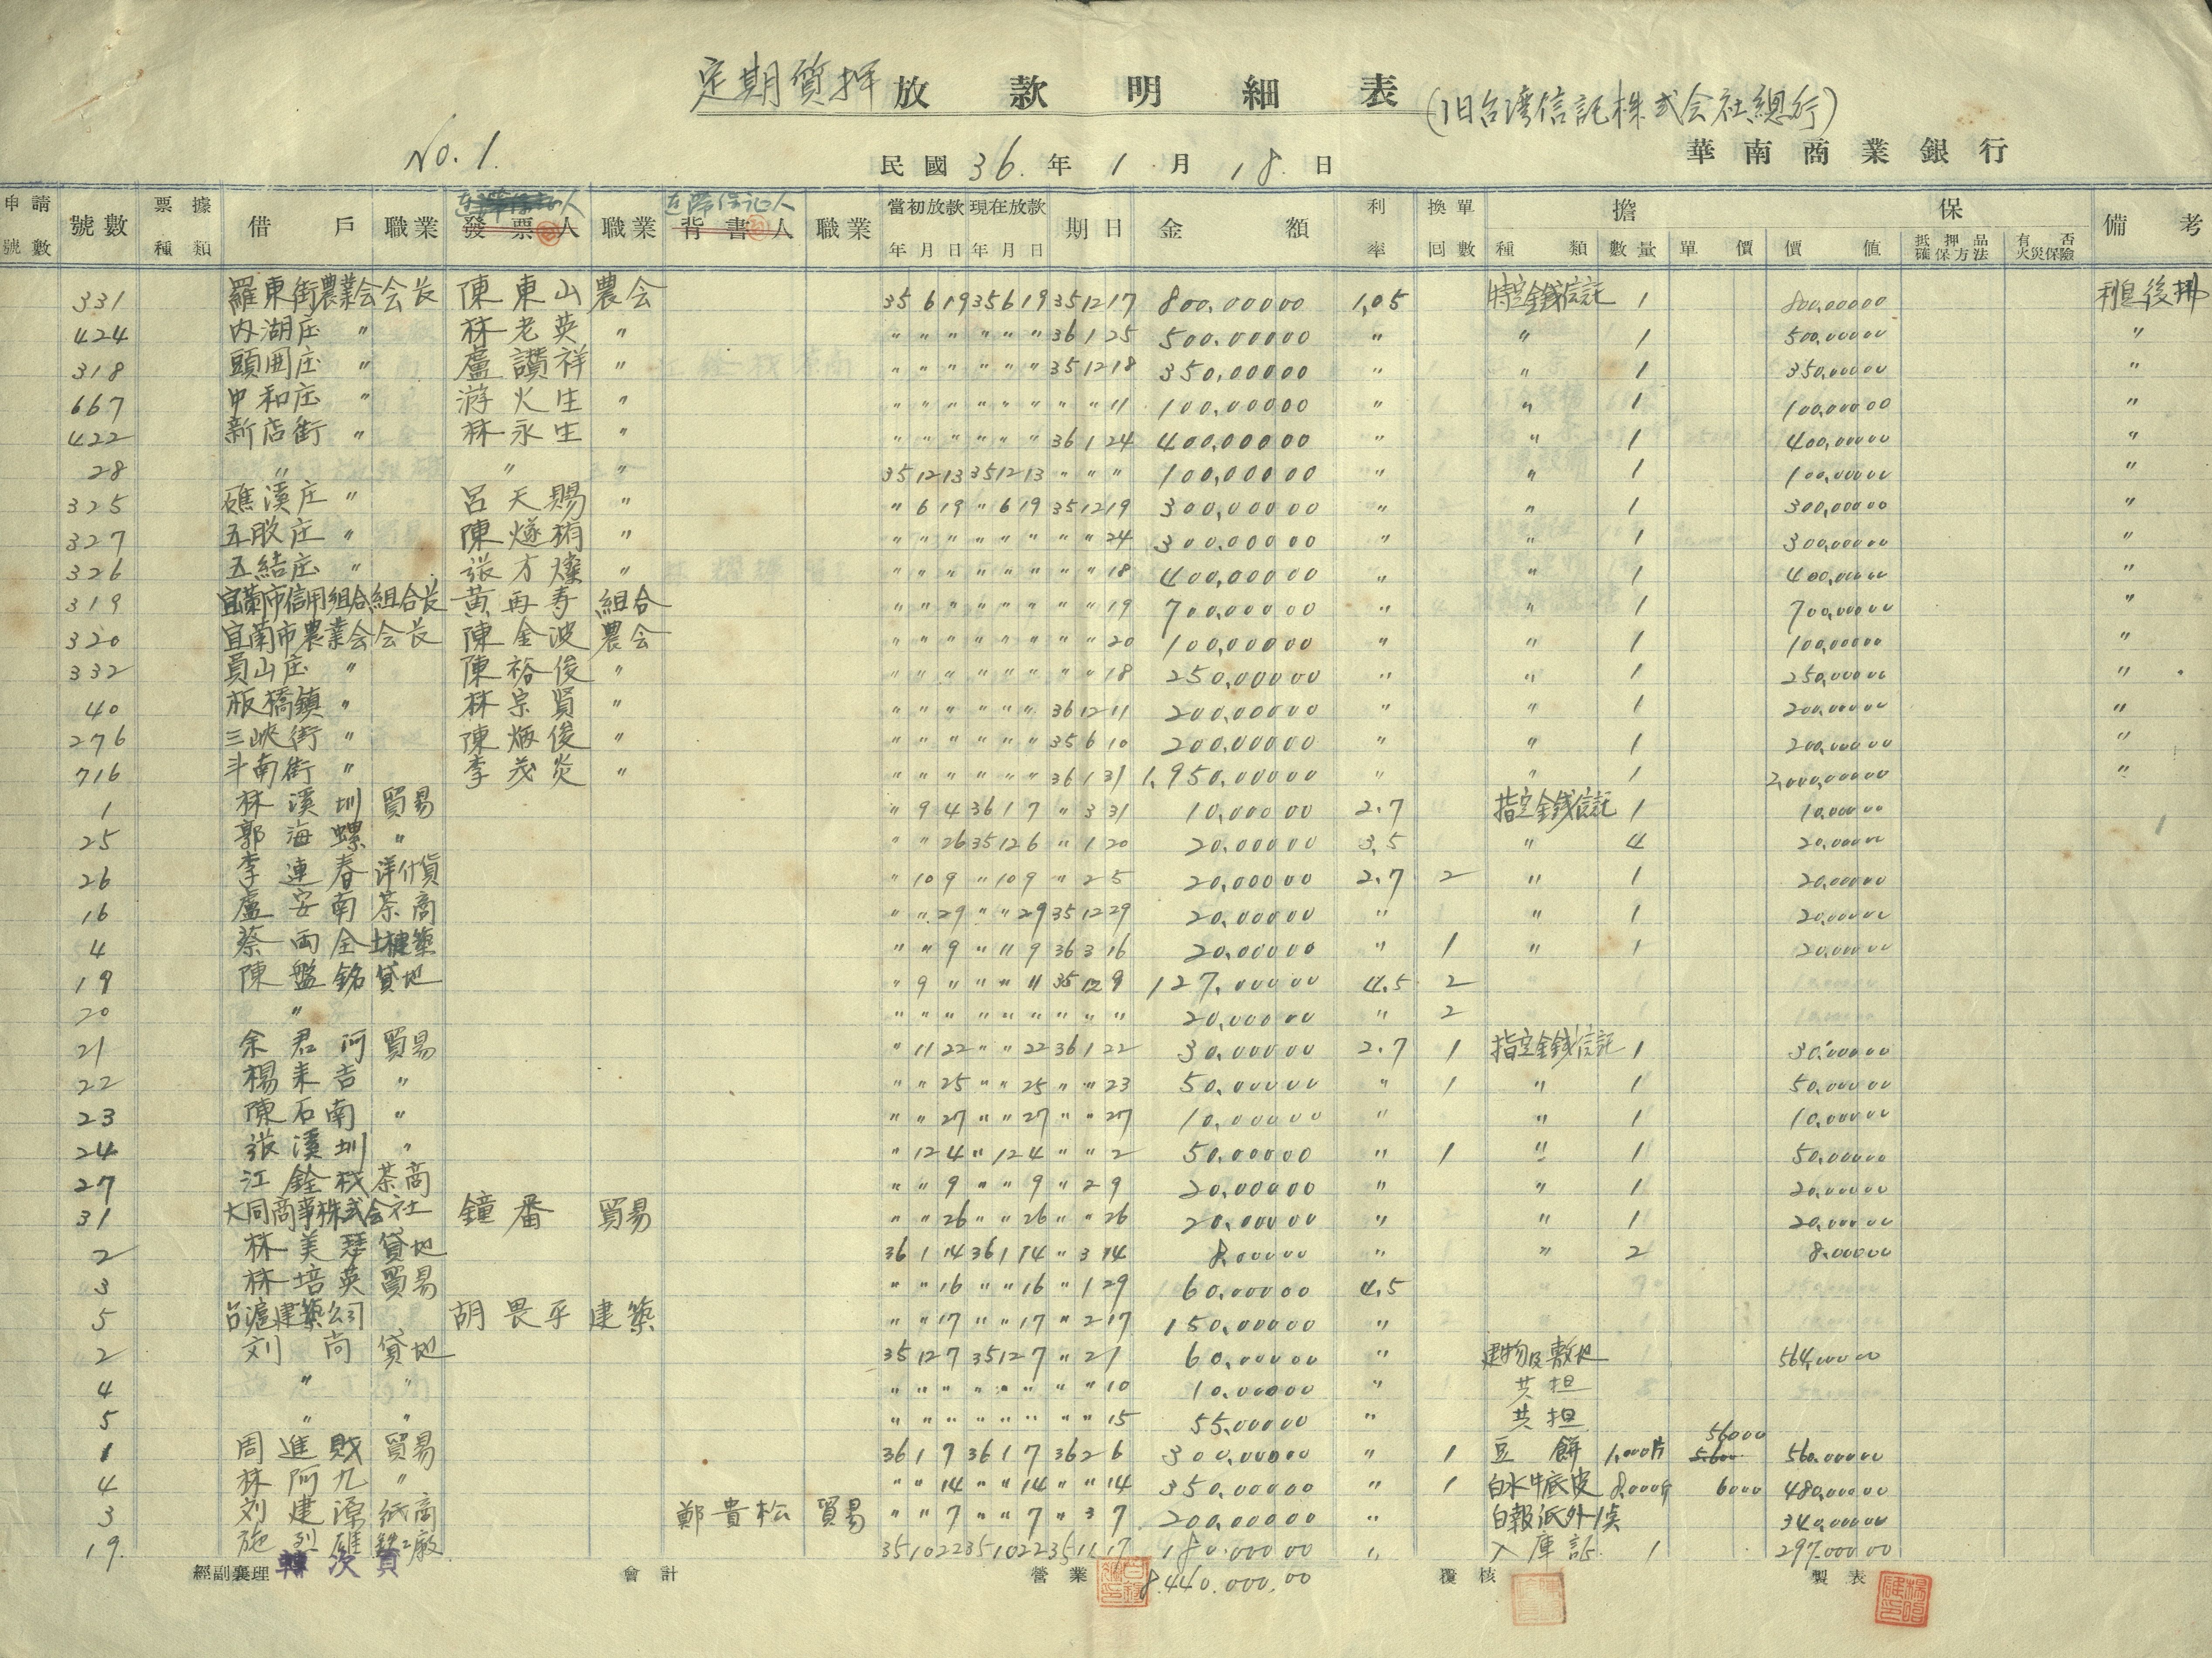 定期質押 放款明細表 (旧台湾信託株式会社總行)
No. 1.
民國 36. 年 1 月 18. 日
華南商業銀行
申請號數 號數 票據種類 借戶 職業 發票人 連帶保証人 職業 背書人 連帶保証人 職業 當初放款年月日 現在放款年月日 期日 金額 利率 換單回數 擔保 種類 數量 單價 價值 抵押品確保方法 有否火災保險 備考
331 羅東街農業会 会長 陳東山 農会 35 6 19 35 6 19 35 12 17 800,000 00 1,05 特定金銭信託 1 800,000 00 利息後拂
424 内湖庄 〃 林老英 〃 〃 〃 〃 〃 〃 〃 36 1 25 500,000 00 〃 〃 1 500,000 00 〃
318 頭囲庄 〃 盧讚祥 〃 〃 〃 〃 〃 〃 〃 35 12 18 350,000 00 〃 〃 1 350,000 00 〃
667 中和庄 〃 游火生 〃 〃 〃 〃 〃 〃 〃 〃 〃 11 100,000 00 〃 〃 1 100,000 00 〃
422 新店街 〃 林永生 〃 〃 〃 〃 〃 〃 〃 36 1 24 400,000 00 〃 〃 1 400,000 00 〃
28 〃 〃 〃 35 12 13 35 12 13 〃 〃 〃 100,000 00 〃 〃 1 100,000 00 〃
325 礁溪庄 〃 呂天賜 〃 〃 6 19 〃 6 19 35 12 19 300,000 00 〃 〃 1 300,000 00 〃
327 五股庄 〃 陳燧 〃 〃 〃 〃 〃 〃 〃 〃 〃 24 300,000 00 〃 〃 1 300,000 00 〃
326 五結庄 〃 張方燦 〃 〃 〃 〃 〃 〃 〃 〃 〃 18 400,000 00 〃 〃 1 400,000 00 〃
319 宜蘭市信用組合 組合長 黃再寿 組合 〃 〃 〃 〃 〃 〃 〃 〃 19 700,000 00 〃 〃 1 700,000 00 〃
320 宜蘭市農業会 会長 陳金波 農会 〃 〃 〃 〃 〃 〃 〃 〃 20 100,000 00 〃 〃 1 100,000 00 〃
332 員山庄 〃 陳裕俊 〃 〃 〃 〃 〃 〃 〃 〃 〃 18 250,000 00 〃 〃 1 250,000 00 〃
40 板橋鎮 〃 林宗賢 〃 〃 〃 〃 〃 〃 〃 36 12 11 200,000 00 〃 〃 1 200,000 00 〃
276 三峽街 〃 陳炳俊 〃 〃 〃 〃 〃 〃 〃 35 6 10 200,000 00 〃 〃 1 200,000 00 〃
716 斗南街 〃 李茂炎 〃 〃 〃 〃 〃 〃 〃 36 1 31 1,950,000 00 〃 〃 1 2,000,000 00 〃
1 林溪圳 貿易 〃 9 4 36 1 7 〃 3 31 10,000 00 2.7 指定金銭信託 1 10,000 00
25 郭海螺 〃 〃 〃 26 35 12 6 〃 1 20 20,000 00 3,5 〃 4 20,000 00
26 李連春 洋什貨 〃 10 9 〃 10 9 〃 2 5 20,000 00 2.7 2 〃 1 20,000 00
16 盧安南 茶商 〃 〃 29 〃 〃 29 35 12 29 20,000 00 〃 〃 1 20,000 00
4 蔡両全 土木建築 〃 〃 9 〃 〃 9 36 3 16 20,000 00 〃 1 〃 1 20,000 00
19 陳盤銘 貸地 〃 9 〃 〃 〃 11 35 12 9 127,000 00 4.5 2
20 〃 〃 〃 〃 〃 〃 〃 〃 〃 〃 20,000 00 〃 2
21 余君河 貿易 〃 11 22 〃 〃 22 36 1 22 30,000 00 2.7 1 指定金銭信託 1 30,000 00
22 楊来吉 〃 〃 〃 25 〃 〃 25 〃 〃 23 50,000 00 〃 1 〃 1 50,000 00
23 陳石南 〃 〃 〃 27 〃 〃 27 〃 〃 27 10,000 00 〃 〃 1 10,000 00
24 張溪圳 〃 〃 12 4 〃 12 4 〃 〃 2 50,000 00 〃 1 〃 1 50,000 00
27 江銓 茶商 〃 〃 9 〃 〃 9 〃 2 9 20,000 00 〃 〃 1 20,000 00
31 大同商事株式会社 鐘番 貿易 〃 〃 26 〃 〃 26 〃 〃 26 20,000 00 〃 〃 1 20,000 00
2 林美 貸地 36 1 14 36 1 14 〃 3 14 8,000 00 〃 〃 2 8,000 00
3 林培英 貿易 〃 〃 16 〃 〃 16 〃 1 29 60,000 00 4,5
5 台滬建築公司 胡畏平 建築 〃 〃 17 〃 〃 17 〃 2 17 150,000 00 〃
2 刘尚 貸地 35 12 7 35 12 7 〃 2 1 60,000 00 〃 建物及敷地 564,000 00
4 〃 〃 〃 〃 〃 〃 〃 〃 〃 〃 10 10,000 00 〃 共担
5 〃 〃 〃 〃 〃 〃 〃 〃 〃 〃 15 55,000 00 〃 共担
1 周進財 貿易 36 1 7 36 1 7 36 2 6 300,000 00 〃 1 豆餅 1,000片 5.600 56000 560,000 00
4 林阿九 〃 〃 〃 14 〃 〃 14 〃 〃 14 350,000 00 〃 1 白水牛底皮 8,000斤 6000 480,000 00
3 刘建源 紙商 鄭貴松 貿易 〃 〃 7 〃 〃 7 〃 3 7 200,000 00 〃 白報紙外1点 340,000 00
19. 施烈雄 鉄工廠 35 10 22 35 10 22 35 11 17 180,000 00 〃 入庫 1 297,000 00
經副襄理 次頁 會計 營業 8,440,000.00 覆核 製表